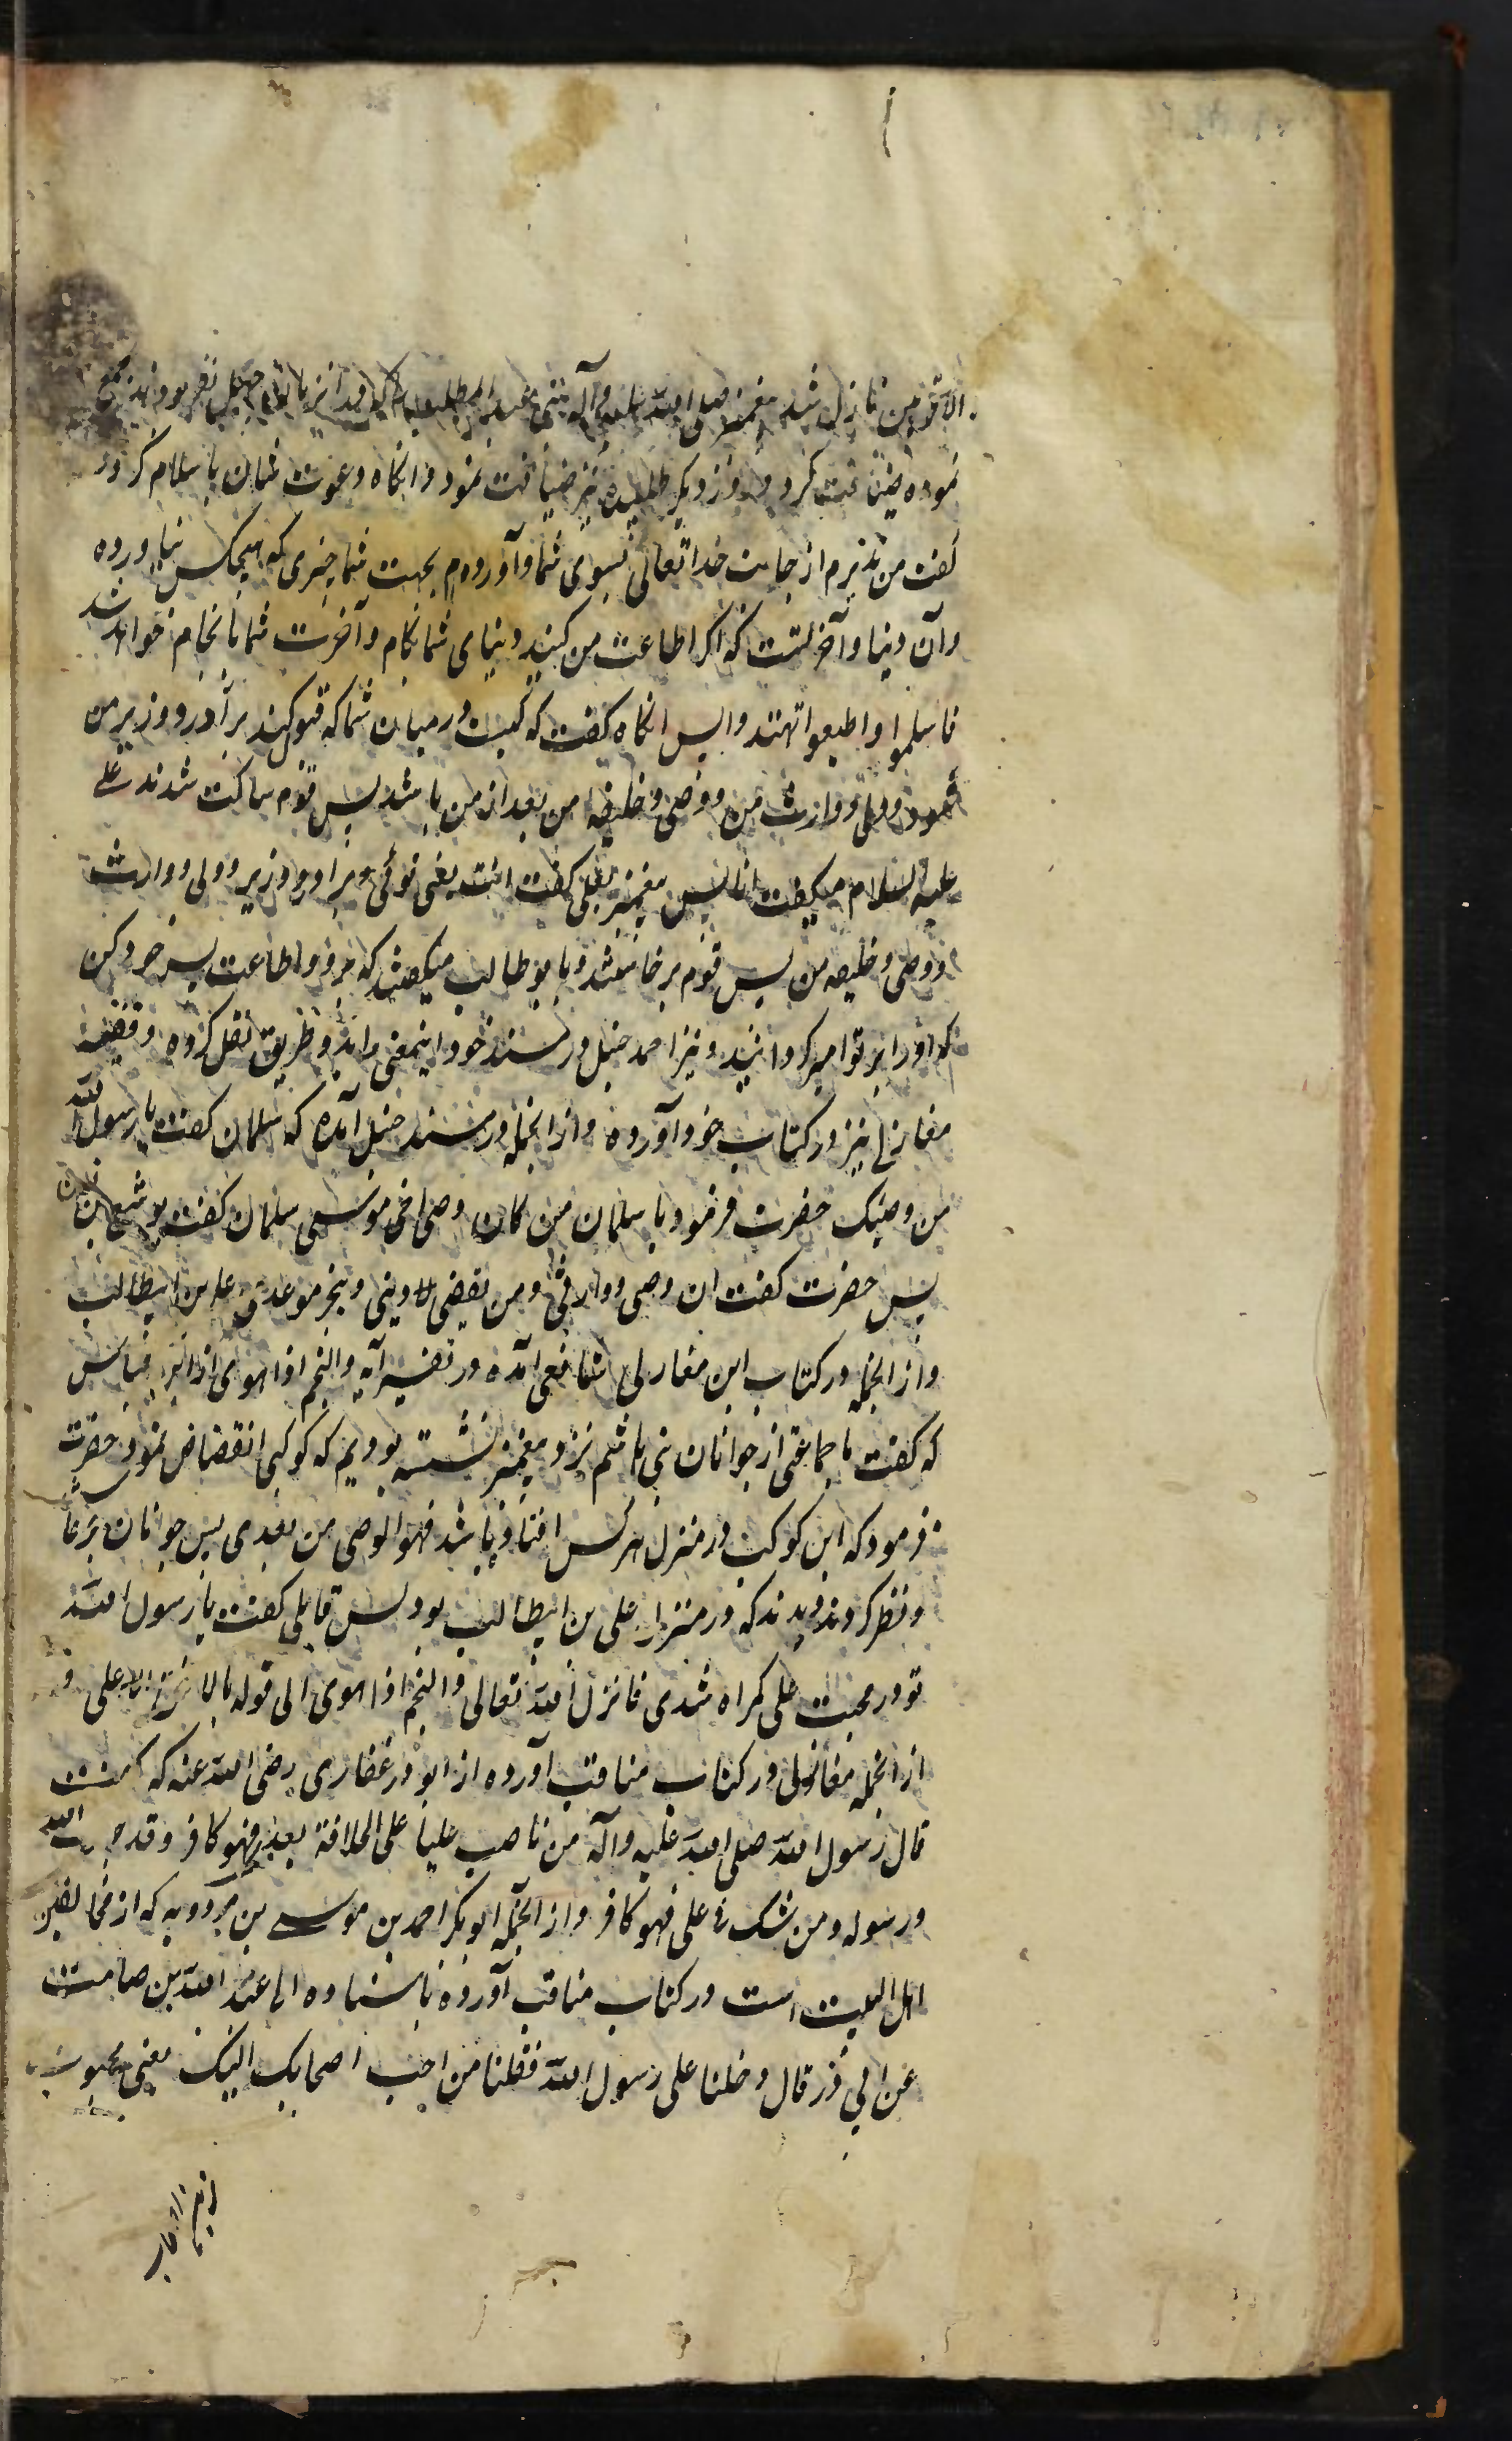 الاقربین نازل شد پیغمبر صلی الله علیه وآله بنی عبدالمطلب را که در آنزمان چهل نفر بودند جمع
نموده ضیافت کرد و روز دیگر طلبیده نیز ضیافت نمود و انکاه دعوت شان باسلام کرد و
کفت من نذیرم از جانب خدا تعالی بسوی شما و آورده‌ام بجهت شما چیزی که هیچکس نیاورده
وآن دنیا و آخرتست که اکر اطاعت من کنید دنیای شما بکام و آخرت شما بانجام خواهد شد
فاسلموا و اطیعوا تهتدوا پس انکاه کفت که کیست در میان شما که قبول کند برادر و وزیر من
شود و ولی و وارث من و وصی و خلیفه من بعد از من باشد پس قوم ساکت شدند علی
علیه السلام میکفت انا پس پیغمبر بعلی کفت انت یعنی توئی برادر و وزیر و ولی و وارث
و وصی و خلیفه من پس قوم برخاستند و با بوطالب میکفتند که برو و اطاعت پسر خود کن
که او را بر تو امیر کردانید و نیز احمد حنبل در مسند خود اینمعنی را بدو طریق نقل کرده و فقیه
مغازلی نیز در کتاب خود آورده و از انجمله در مسند حنبل آمده که سلمان کفت یا رسول الله
من وصیک حضرت فرمود یا سلمان من کان وصی اخی موسی سلمان کفت یوشع بن نون
پس حضرت کفت ان وصی و وارثی و من یقضی دینی و ینجز موعدی علی بن ابیطالب
و از انجمله در کتاب ابن مغازلی شافعی آمده در تفسیر آیه والنجم اذا هوی از ابن عباس
که کفت با جماعتی از جوانان بنی هاشم نزد پیغمبر نشسته بودیم که کوکبی انقضاض نمود حضرت
فرمود که این کوکب در منزل هر کس افتاده باشد فهو الوصی من بعدی پس جوانان برخاستند
و نظر کردند دیدند که در منزل علی بن ابیطالب بود پس قایلی کفت یا رسول الله
تو در محبت علی کمراه شدی فانزل الله تعالی والنجم اذا هوی الی قوله بالافق الاعلی و
از انجمله مغازلی در کتاب مناقب آورده از ابوذر غفاری رضی الله عنه که کفت
قال رسول الله صلی الله علیه وآله من ناصب علیا علی الخلافة بعدی فهو کافر و قد حارب الله
و رسوله و من شک فی علی فهو کافر و از آنجمله ابوبکر احمد بن موسی بن مردویه که از مخالفین
اهل البیت است در کتاب مناقب آورده باسناده الی عبد الله بن صامت
عن ابی ذر قال دخلنا علی رسول الله فقلنا من احب اصحابک الیک یعنی محبوب